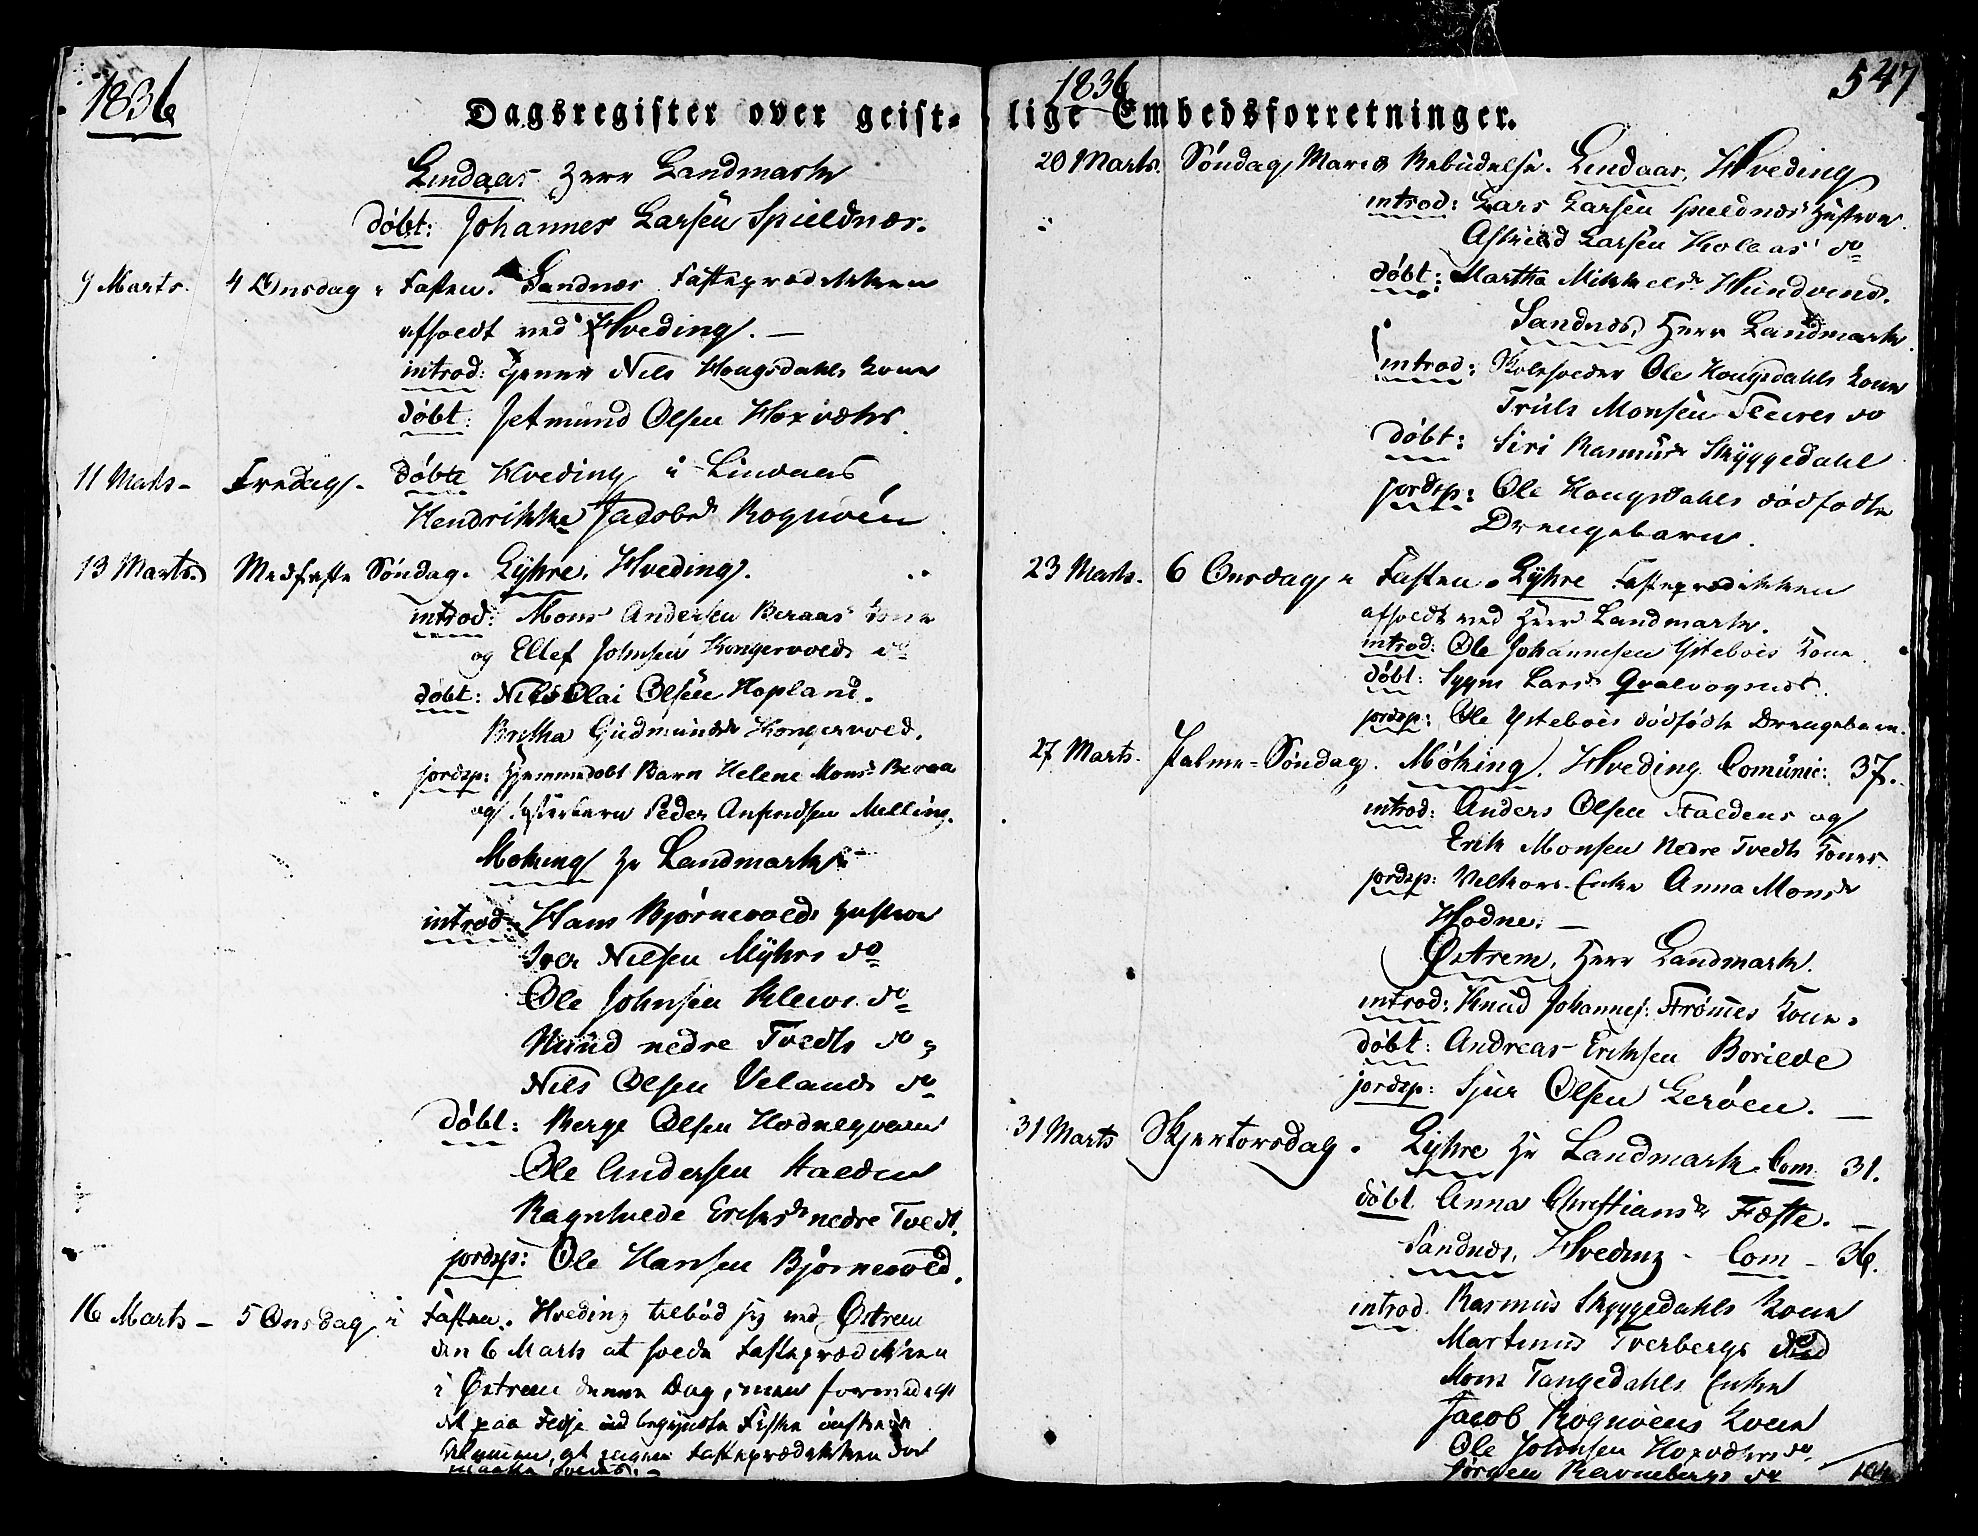 1836
Dagsregister over geist-
Lindaas Herr Landmark
døbt: Johannes Larsen Spieldnæs.
9 Marts. 4 Onsdag i Fasten. Sandnæs Fasteprædikken
afholdt ved Hveding. —
introd: Nils Hougsdahls Kone
døbt: Jetmund Olsen
11 Marts - Fredag. døbte Hveding i Lindaas
Hendrikke Jacobsd Rognøen
13 Marts. Medfaste Søndag. Lyhre. Hveding.
introd: Mons Andersen Beraas Kone
og Ellef Johnsen Kongervold do
døbt: Nils Olai Olsen Hopland.
Britha Gudmundsd Kongervold.
jordsp: Hjemmedøbt Barn Helene Monsd Beraa
og Peder Anfindsen Melling.
Møking Hr Landmark
introd: Hans Bjørnevolds Hustroe
Iver Nilsen Myhrs do
Ole Johnsen Kleivs do
Knud nedre Tvedts do
Nils Olsen Velands do
døbt: Berge Olsen Hodneqvam
Ole Andersen Halden
Ragnhilde Eriksd nedre Tvedt.
jordsp: Ole Hansen Bjørnevold.
16 Marts - 5 Onsdag i Fasten. Hveding tilbød sig ved Østrem
den 6 Marts at holde Fasteprædikken
i Østrem denne Dag, men formedelst
det paa Fedje begyndte Fiskerie
Almuen, at ingen Fasteprædikken der
maatte holdes. —
1836
547
lige Embedsforretninger.
20 Marts. Søndag Mariæ Bebudelse. Lindaas. Hveding
introd: Lars Larsen Spieldnæs Hustroe.
Larsen Kolaas do
døbt: Martha Mikkelsd Hundvind.
Sandnæs, Herr Landmark.
introd: Skoleholder Ole Hougsdahls Kone
Truls Monsen do
døbt: Siri Rasmusd Skyggedahl
jordsp: Ole Hougsdahls dødfødte
Drengebarn.
23 Marts. 6 Onsdag i Fasten. Lyhre Fasteprædikken
afholdt ved Herr Landmark.
introd: Ole Johannesen Ystebøes Kone.
døbt: Larsd
jordsp: Ole Ystebøes dødfødte Drengebarn.
27 Marts. Palme-Søndag. Møking. Hveding. Comunic: 37.
introd: Anders Olsen Haldens og
Erik Monsen Nedre Tvedts Koner
jordsp: Enke Anna Monsd
Hodne. —
Østrem, Herr Landmark.
introd: Knud Johannes: Strømes Kone.
døbt: Andreas Eriksen Borilde
jordsp: Sjur Olsen Lerøen. —
31 Marts Skjertorsdag. Lyhre Hr Landmark Com. 31.
døbt. Anna Christiansd Fæste. —
Sandnæs, Hveding - Com - 36.
introd. Rasmus Skyggedahls Kone
Martinus Tverbergs do
Mons Tangedahls Enke
Jacob Rognøens Kone
Ole Johnsen do
Jørgen Ravnebergs do
104